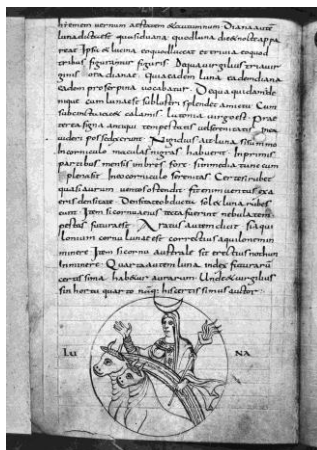 hiemem vernum aestatem & autumnum Diana aute
luna dicta est quasi duana quod luna die & nocte appa
reat Ipsa & lucina eo quod luceat et trivia eo quod
tribus figuratur figuris De qua virgilius tria vir
ginis ora dianae Qua eadem luna eadem diana
eadem proserpina vocabatur De qua quidam de
nique cum luna est
sub cincta calamis latonia virgo est Prae
terea signa
videnti posse Nigidius ait luna si summo
in corniculo maculas nigras habuerit In primis
partibus mensis imbres fore Si in media tunc cum
plena sit In eo corniculo serenitas Certe si rubet
quasi aurum ventos ostendit fit enim ventus ex a
eris densitate Densitate obducta sol & luna rubes
cunt Item si cornua eius tecta fuerint nebula tem
pestas futura est Aratus autem dicit si aqui
lonium cornu lunae est correctius aquilonem in
minere Item si cornu australe sit erectius nothum
inminere Quarta autem luna index futurarum
certissima habetur aurarum Unde & virgilius
sin hortu quarto namq: his certissimus auctor
LU NA